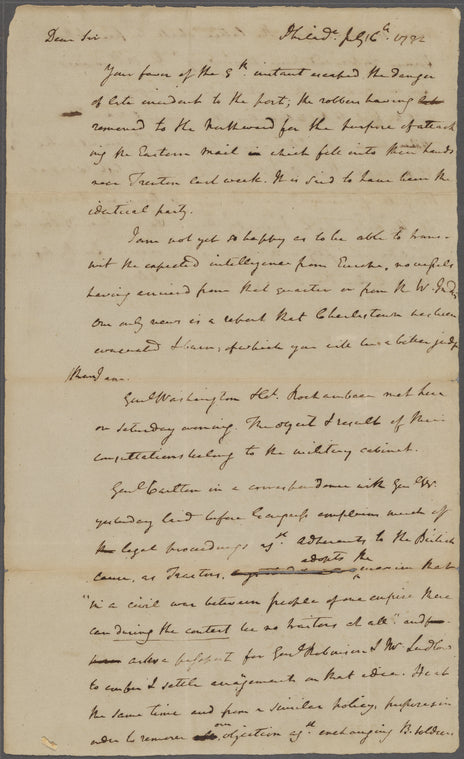 Dear Sir Philada. July 16th. 1782
Your favor of the 9th. instant escaped the danger
of late incident to the post; the robbers having
removed to the Northward for the purpose of attack
ing the Eastern mail in which fell into their hands
near Trenton last week. It is said to have been the
identical party.
I am not yet so happy as to be able to trans-
mit the expected intelligence from Europe, no vessels
having arrived from that quarter or from the W. Inds
Our only news is a report that Charlestown has been
evacuated of which you will be a better judge
than I am.
Genl. Washington & Ct. Rochambeau met here
on saturday evening. The object & result of their
consultations belong to the military cabinet.
Genl. Carlton in a correspondence with Genl W.
yesterday laid before Congress complains much of
the legal proceedings agst. adherents to the British
adopts the
cause, as Traitors, maxim that
"in a civil war between people of one empire there
can during the contest be no traitors at all" and
asks a passport for Genl. Robinson & Mr. Ludlow
to confer & settle arrangements on that idea. He at
the same time and from a similar policy, proposes in
order to remove our objection agst. exchanging B. soldiers